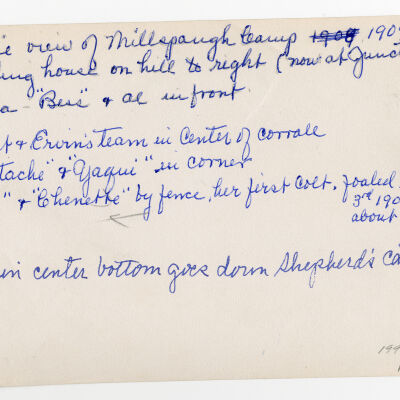 e view of Millspaugh Camp 1908 190
ing house on hill to right (now at Junc
a - "Bess" & al in front
t & Ervin's team in center of corrale
tache" & "Yaqui" in corner
" & "Chenette" by fence, her first colt, foaled
3rd, 190
about
in center bottom goes down Shepherd's Ca
199